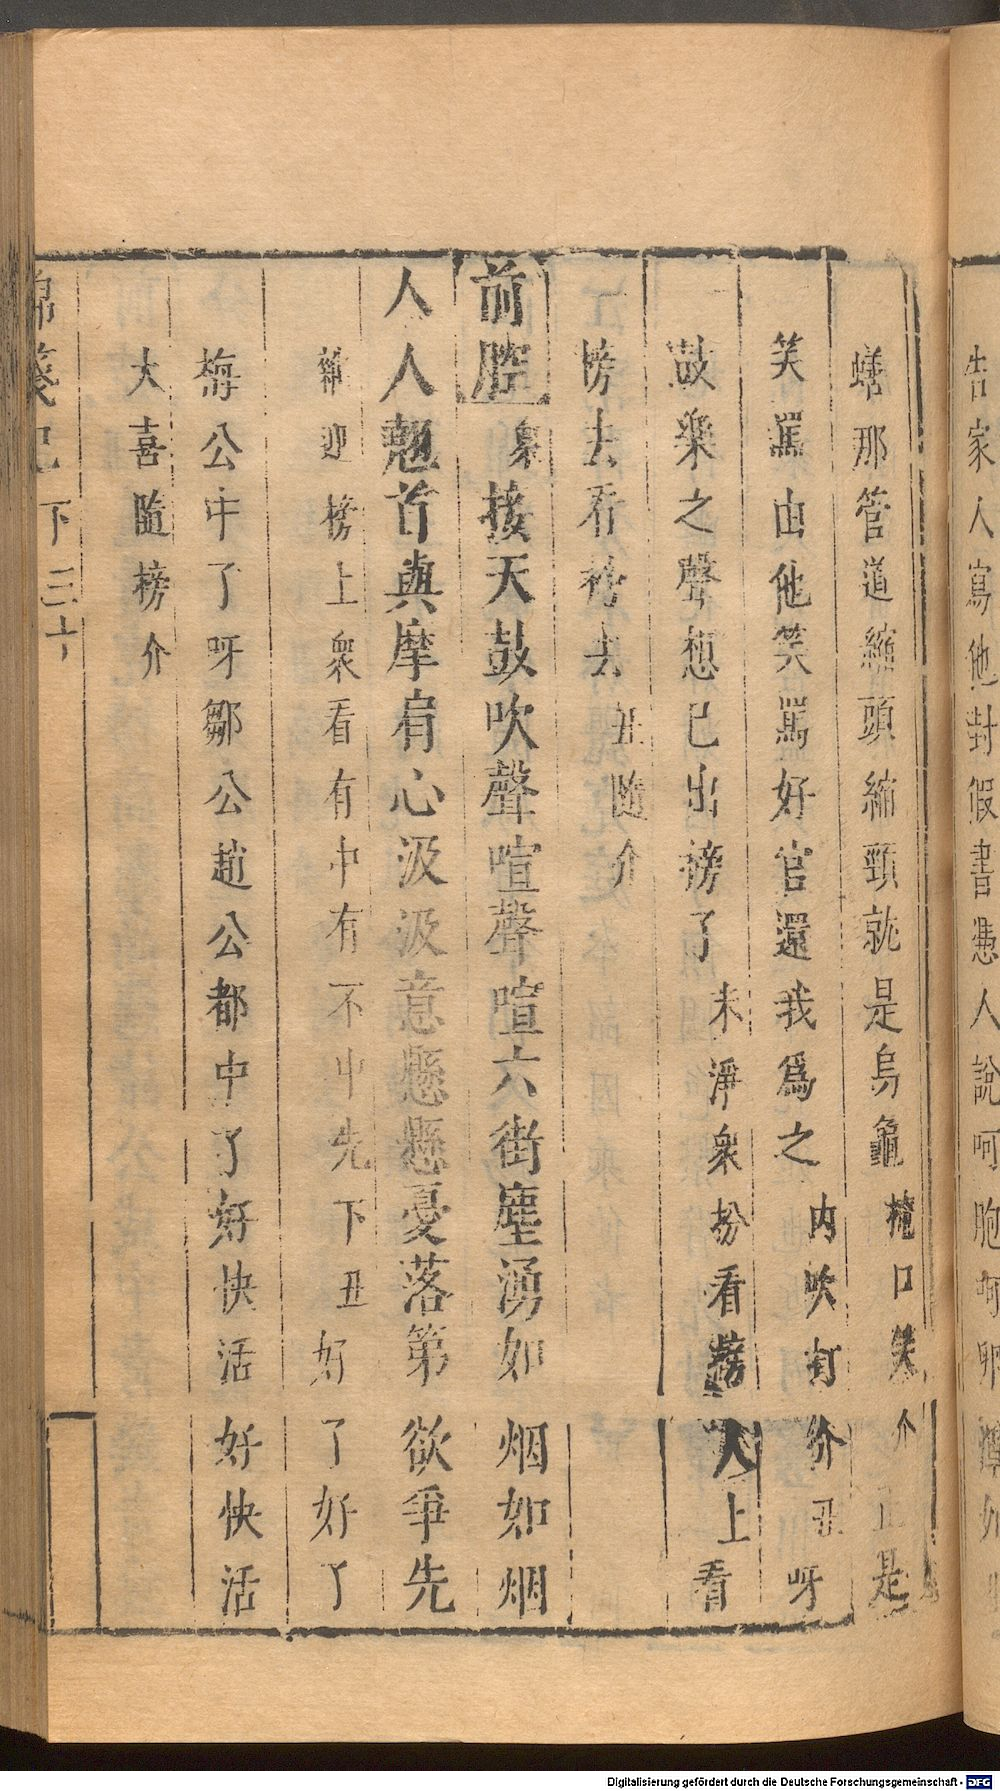 告家人寫他封假書憑人說呵胞呵卵
蟮那管道縮頭縮頸就是烏龜掩口笑介正是
笑罵由他笑罵好官還我爲之内吹打介丑呀
鼓樂之聲想已出榜了末淨衆扮看榜人上看
榜去看榜去丑隨介
前腔衆接天鼓吹聲喧聲喧六街塵湧如烟如烟
人人翹首與摩肩心汲汲意懸懸憂落第欲爭先
雜迎榜上衆看有中有不中先下丑好了好了
梅公中了呀鄒公趙公都中了好快活好快活
大喜隨榜介
錦箋記下三十
Digitalisierung gefördert durch die Deutsche Forschungsgemeinschaft - DFG